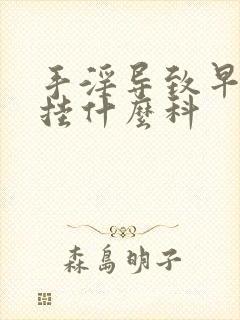 手淫导致早
挂什麼科
森島明子